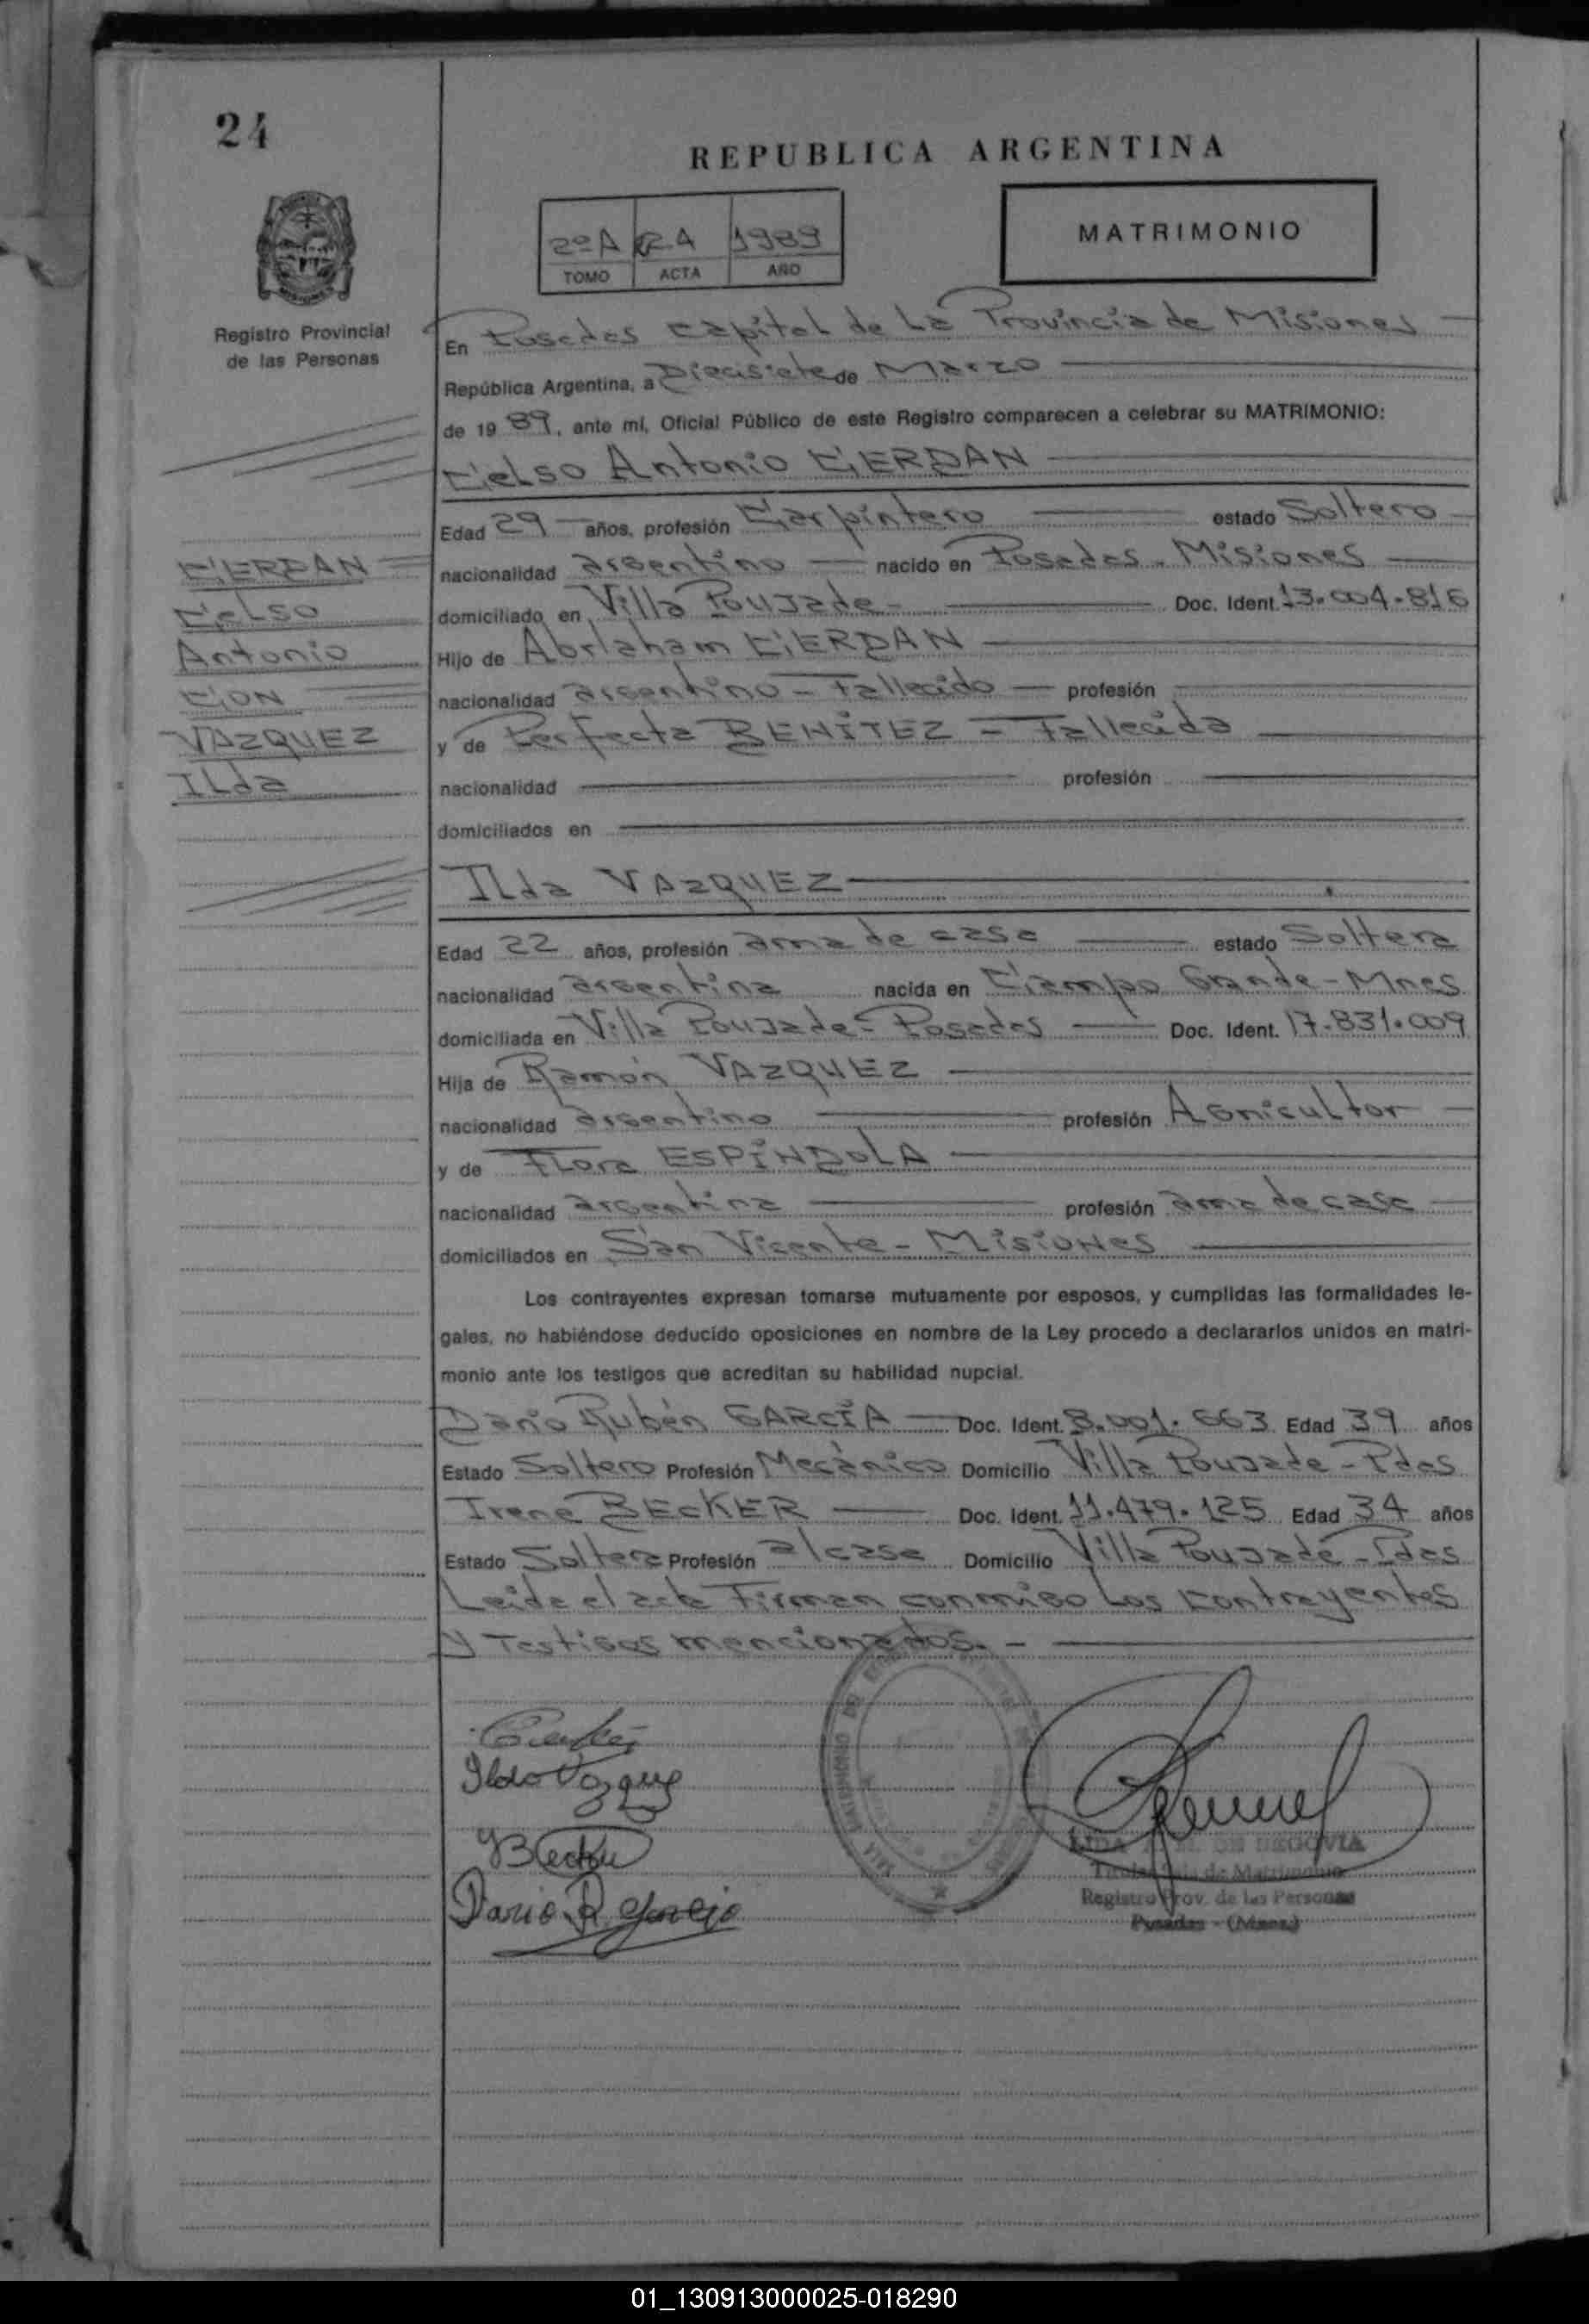 24
REPUBLICA ARGENTINA
2ºA 24 1989
TOMO ACTA AÑO
MATRIMONIO
Registro Provincial
de las Personas
En Posadas Capital de La Provincia de Misiones
República Argentina, a Diecisiete de Marzo
de 1989, ante mí, Oficial Público de este Registro comparecen a celebrar su MATRIMONIO:
Celso Antonio CERDAN
Edad 29 años, profesión Carpintero estado Soltero
nacionalidad argentino nacido en Posadas - Misiones
domiciliado en Villa Poujade - Doc. Ident. 13.004.816
Hijo de Abrlaham CERDAN
nacionalidad argentino - Fallecido - profesión
y de Perfecta BENITEZ - Fallecida
nacionalidad profesión
domiciliados en
CERDAN
Celso
Antonio
CON
VAZQUEZ
ILda
ILda VAZQUEZ
Edad 22 años, profesión ama de casa estado Soltera
nacionalidad argentina nacida en Campo Grande - Mnes
domiciliada en Villa Poujade - Posadas Doc. Ident. 17.831.009
Hija de Ramón VAZQUEZ
nacionalidad argentino profesión Agricultor
y de FLora ESPINDOLA
nacionalidad argentina profesión ama de casa
domiciliados en San Vicente - Misiones
Los contrayentes expresan tomarse mutuamente por esposos, y cumplidas las formalidades le-
gales, no habiéndose deducido oposiciones en nombre de la Ley procedo a declararlos unidos en matri-
monio ante los testigos que acreditan su habilidad nupcial.
Dario Rubén GARCÍA Doc. Ident. 8.001.663 Edad 39 años
Estado Soltero Profesión Mecánico Domicilio Villa Poujade - Pdas
Irene BECKER Doc. Ident. 11.479.125 Edad 34 años
Estado Soltera Profesión a/casa Domicilio Villa Poujade - Pdas
Leida el acta Firman conmigo Los contrayentes
y Testigos mencionados. -
Ilda Vazquez
Dario R Garcia
DE SEGOVIA
Titular Sala de Matrimonio
Registro Prov. de las Personas
Posadas - (Mnes.)
01_130913000025-018290